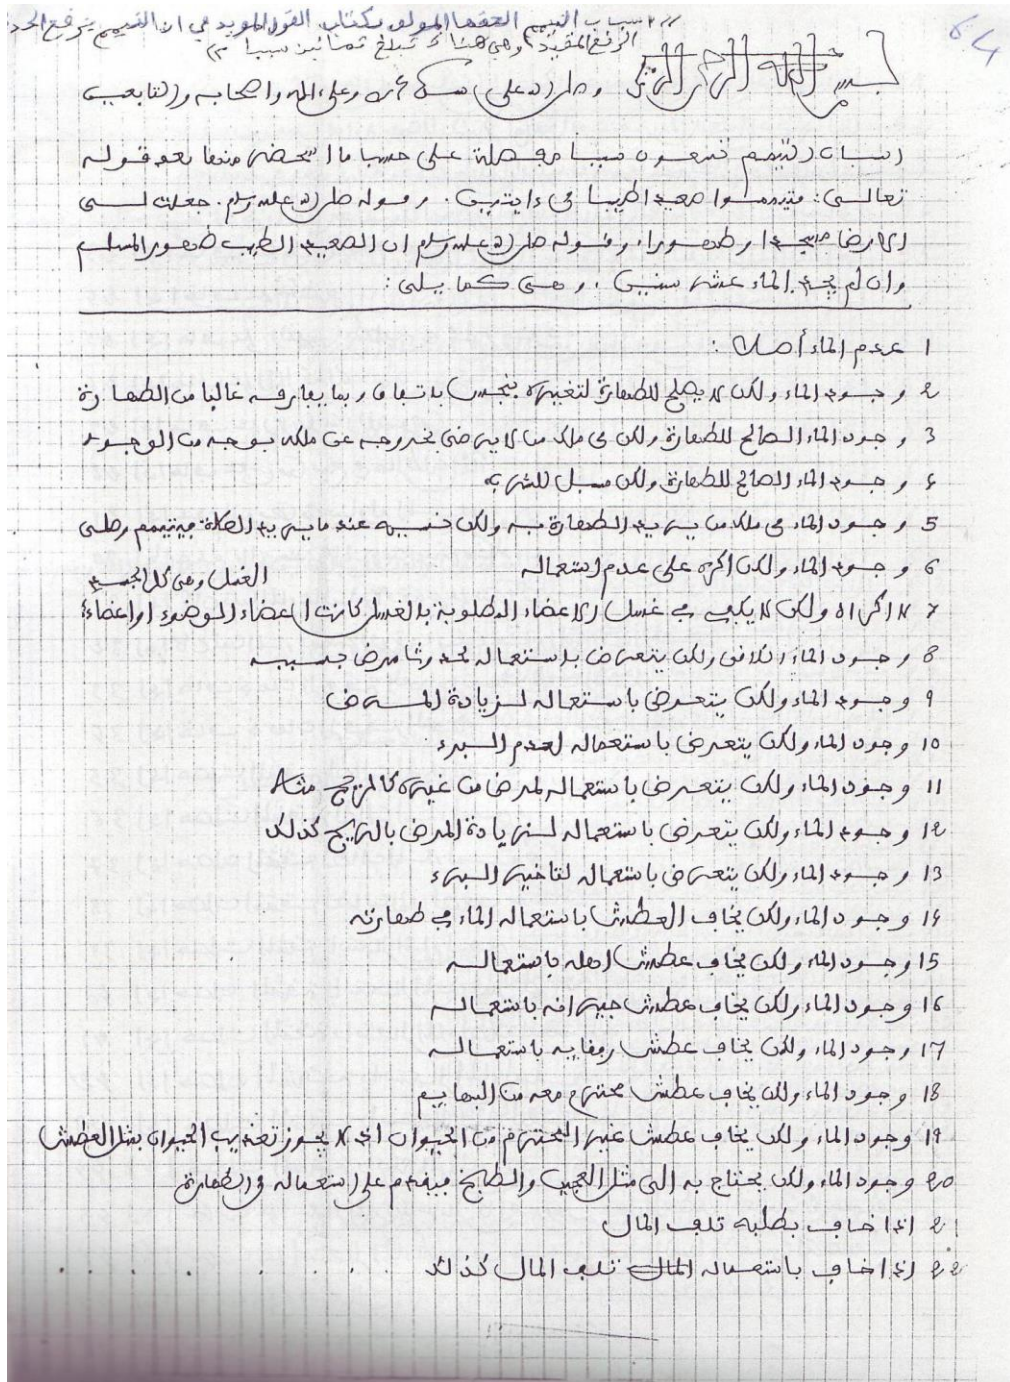 64
أسباب التيمم ألحقها المؤلف بكتاب القول المؤيد في ان التيمم يرفع الحد
الرفع المقيد وهي هنا تبلغ ثمانين سببا
بسم الله الرحمن الرحيم وصلى الله على سيدنا محمد وعلى اله واصحابه والتابعين
اسباب التيمم تسعون سببا مفصلة على حسب ما استحضر منها بعد قوله
تعالى: فتيمموا صعيدا طيبا في ءايتين. وقوله صلى الله عليه وسلم. جعلت لي
الارض مسجدا وطهورا، وقوله صلى الله عليه وسلم ان الصعيد الطيب طهور المسلم
وان لم يجد الماء عشر سنين، وهي كما يلي:
1 عدم الماء أصلا:
2 وجود الماء ولكن لا يصلح للطهارة لتغيره بنجس باتفاق او بما يفارقه غالبا من الطهارة
3 وجود الماء الصالح للطهارة ولكن في ملك من لا يرضى بخروجه عن ملكه بوجه من الوجوه
4 وجود الماء الصالح للطهارة ولكن مسبل للشرب
5 وجود الماء في ملك من يريد الطهارة به ولكن نسيه عند ما يريد الصلاة فيتيمم وصلى
6 وجود الماء ولكن اكره على عدم استعماله
الغسل وهي كل الجسد
7 لا اكراه ولكن لا يكفي في غسل الاعضاء المطلوبة بالغسل كانت اعضاء الوضوء او اعضاء
8 وجود الماء الكافي ولكن يتعرض باستعماله لحدوث مرض بسببه
9 وجود الماء ولكن يتعرض باستعماله لزيادة المرض
10 وجود الماء ولكن يتعرض باستعماله لعدم البرء
11 وجود الماء ولكن يتعرض باستعماله لمرض من غيره كالريح مثلا
12 وجود الماء ولكن يتعرض باستعماله لزيادة المرض بالريح كذلك
13 وجود الماء ولكن يتعرض باستعماله لتاخير البرء
14 وجود الماء ولكن يخاف العطش باستعماله الماء في طهارته
15 وجود الماء ولكن يخاف عطش اهله باستعماله
16 وجود الماء ولكن يخاف عطش جيرانه باستعماله
17 وجود الماء ولكن يخاف عطش رفقايه باستعماله
18 وجود الماء ولكن يخاف عطش محترم معه من البهايم
19 وجود الماء ولكن يخاف عطش غير المحترم من الحيوان اذ لا يجوز تعذيب الحيوان بمثل العطش
20 وجود الماء ولكن يحتاج به الى مثل العجين والطبخ فيقدم على استعماله في الطهارة
21 اذا خاف بطلبه تلف المال
22 اذا خاف باستعماله المال تلف المال كذلك . . . . . . . . .